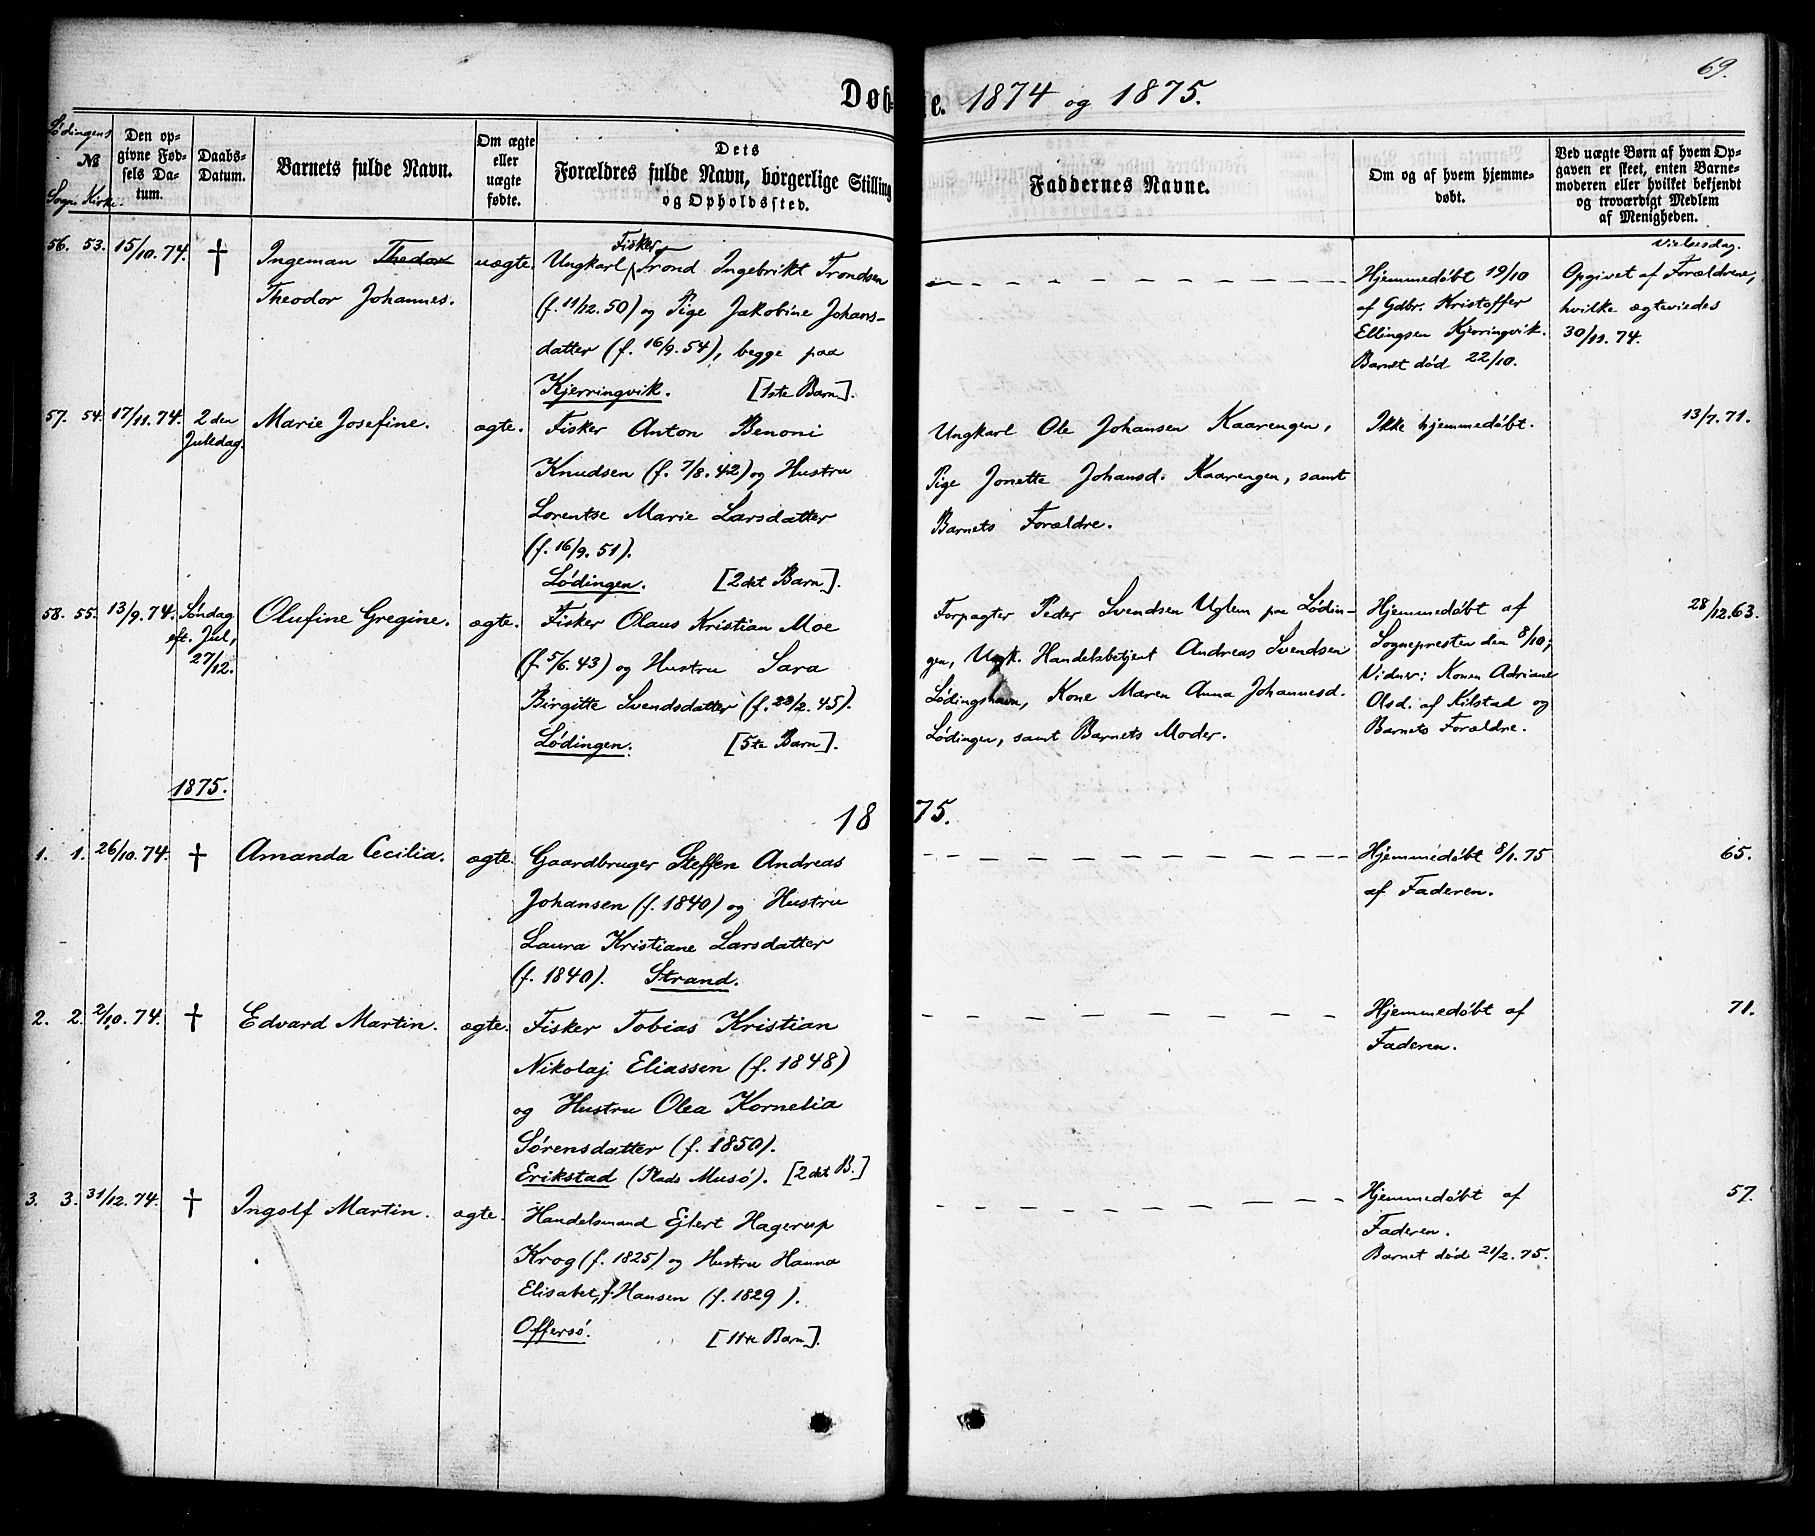 69.
Døb-
e. 1874 og 1875.
Lødingens
№
Sogn. Kirke.
Den op-
givne Fød-
sels Da-
tum.
Daabs-
Datum.
Barnets fulde Navn.
Om ægte
eller
uægte
fødte.
Dets
Forældres fulde Navn, borgerlige Stilling
og Opholdssted.
Faddernes Navne.
Om og af hvem hjemme-
døbt.
Ved uægte Børn af hvem Op-
gaven er skeet, enten Barne-
moderen eller hvilket bekjendt
og troværdigt Medlem
af Menigheden.
Vielsesdag.
56. 53. 15/10. 74. † Ingeman Thedor
Theodor Johannes.
uægte.
Fisker
Ungkarl Trond Ingebrikt Trondsen
(f. 11/12. 50) og Pige Jakobine Johans-
datter (f. 16/9. 54), begge paa
Kjerringvik. [1ste Barn].
Hjemmedøbt 19/10
af Gdbr. Kristoffer
Ellingsen Kjerringvik.
Barnet død 22/10.
Opgivet af Forældrene,
hvilke ægteviedes
30/11. 74.
57. 54. 17/11. 74. 2den
Juledag.
Marie Josefine.
ægte.
Fisker Anton Benoni
Knudsen (f. 7/8. 42) og Hustru
Lorentse Marie Larsdatter
(f. 16/9. 51).
Lødingen. [2det Barn].
Ungkarl Ole Johansen Kaarengen,
Pige Jonette Johansd. Kaarengen, samt
Barnets Forældre.
Ikke hjemmedøbt.
13/7. 71.
58. 55. 13/9. 74. Søndag
eft. Jul,
27/12.
Olufine Gregine.
ægte.
Fisker Olaus Kristian Moe
(f. 5/6. 43) og Hustru Sara
Birgitte Svendsdatter (f. 22/2. 45).
Lødingen. [5te Barn].
Forpagter Peder Svendsen Uglem paa Lødin-
gen, Ungk. Handelsbetjent Andreas Svendsen
Lødingshavn, Kone Maren Anna Johannesd.
Lødingen, samt Barnets Moder.
Hjemmedøbt af
Sognepresten den 8/10;
Vidner: Konen Adriane
Olsd. af Kilstad og
Barnets Forældre.
28/12. 63.
1875.
18 75.
1. 1. 26/10. 74. † Amanda Cecilia.
ægte.
Gaardbruger Steffen Andreas
Johansen (f. 1840) og Hustru
Laura Kristiane Larsdatter
(f. 1840). Strand.
Hjemmedøbt 8/1. 75
af Faderen.
65.
2. 2. 2/10. 74. † Edvard Martin.
ægte.
Fisker Tobias Kristian
Nikolaj Eliassen (f. 1848)
og Hustru Olea Kornelia
Sørensdatter (f. 1850).
Erikstad (Plads Musø). [2det B.]
Hjemmedøbt af
Faderen.
71.
3. 3. 31/12. 74. † Ingolf Martin.
ægte.
Handelsmand Ejlert Hagerup
Krog (f. 1825) og Hustru Hanna
Elisabet, f. Hansen (f. 1829).
Offersø. [11te Barn].
Hjemmedøbt af
Faderen.
Barnet død 21/2. 75.
57.